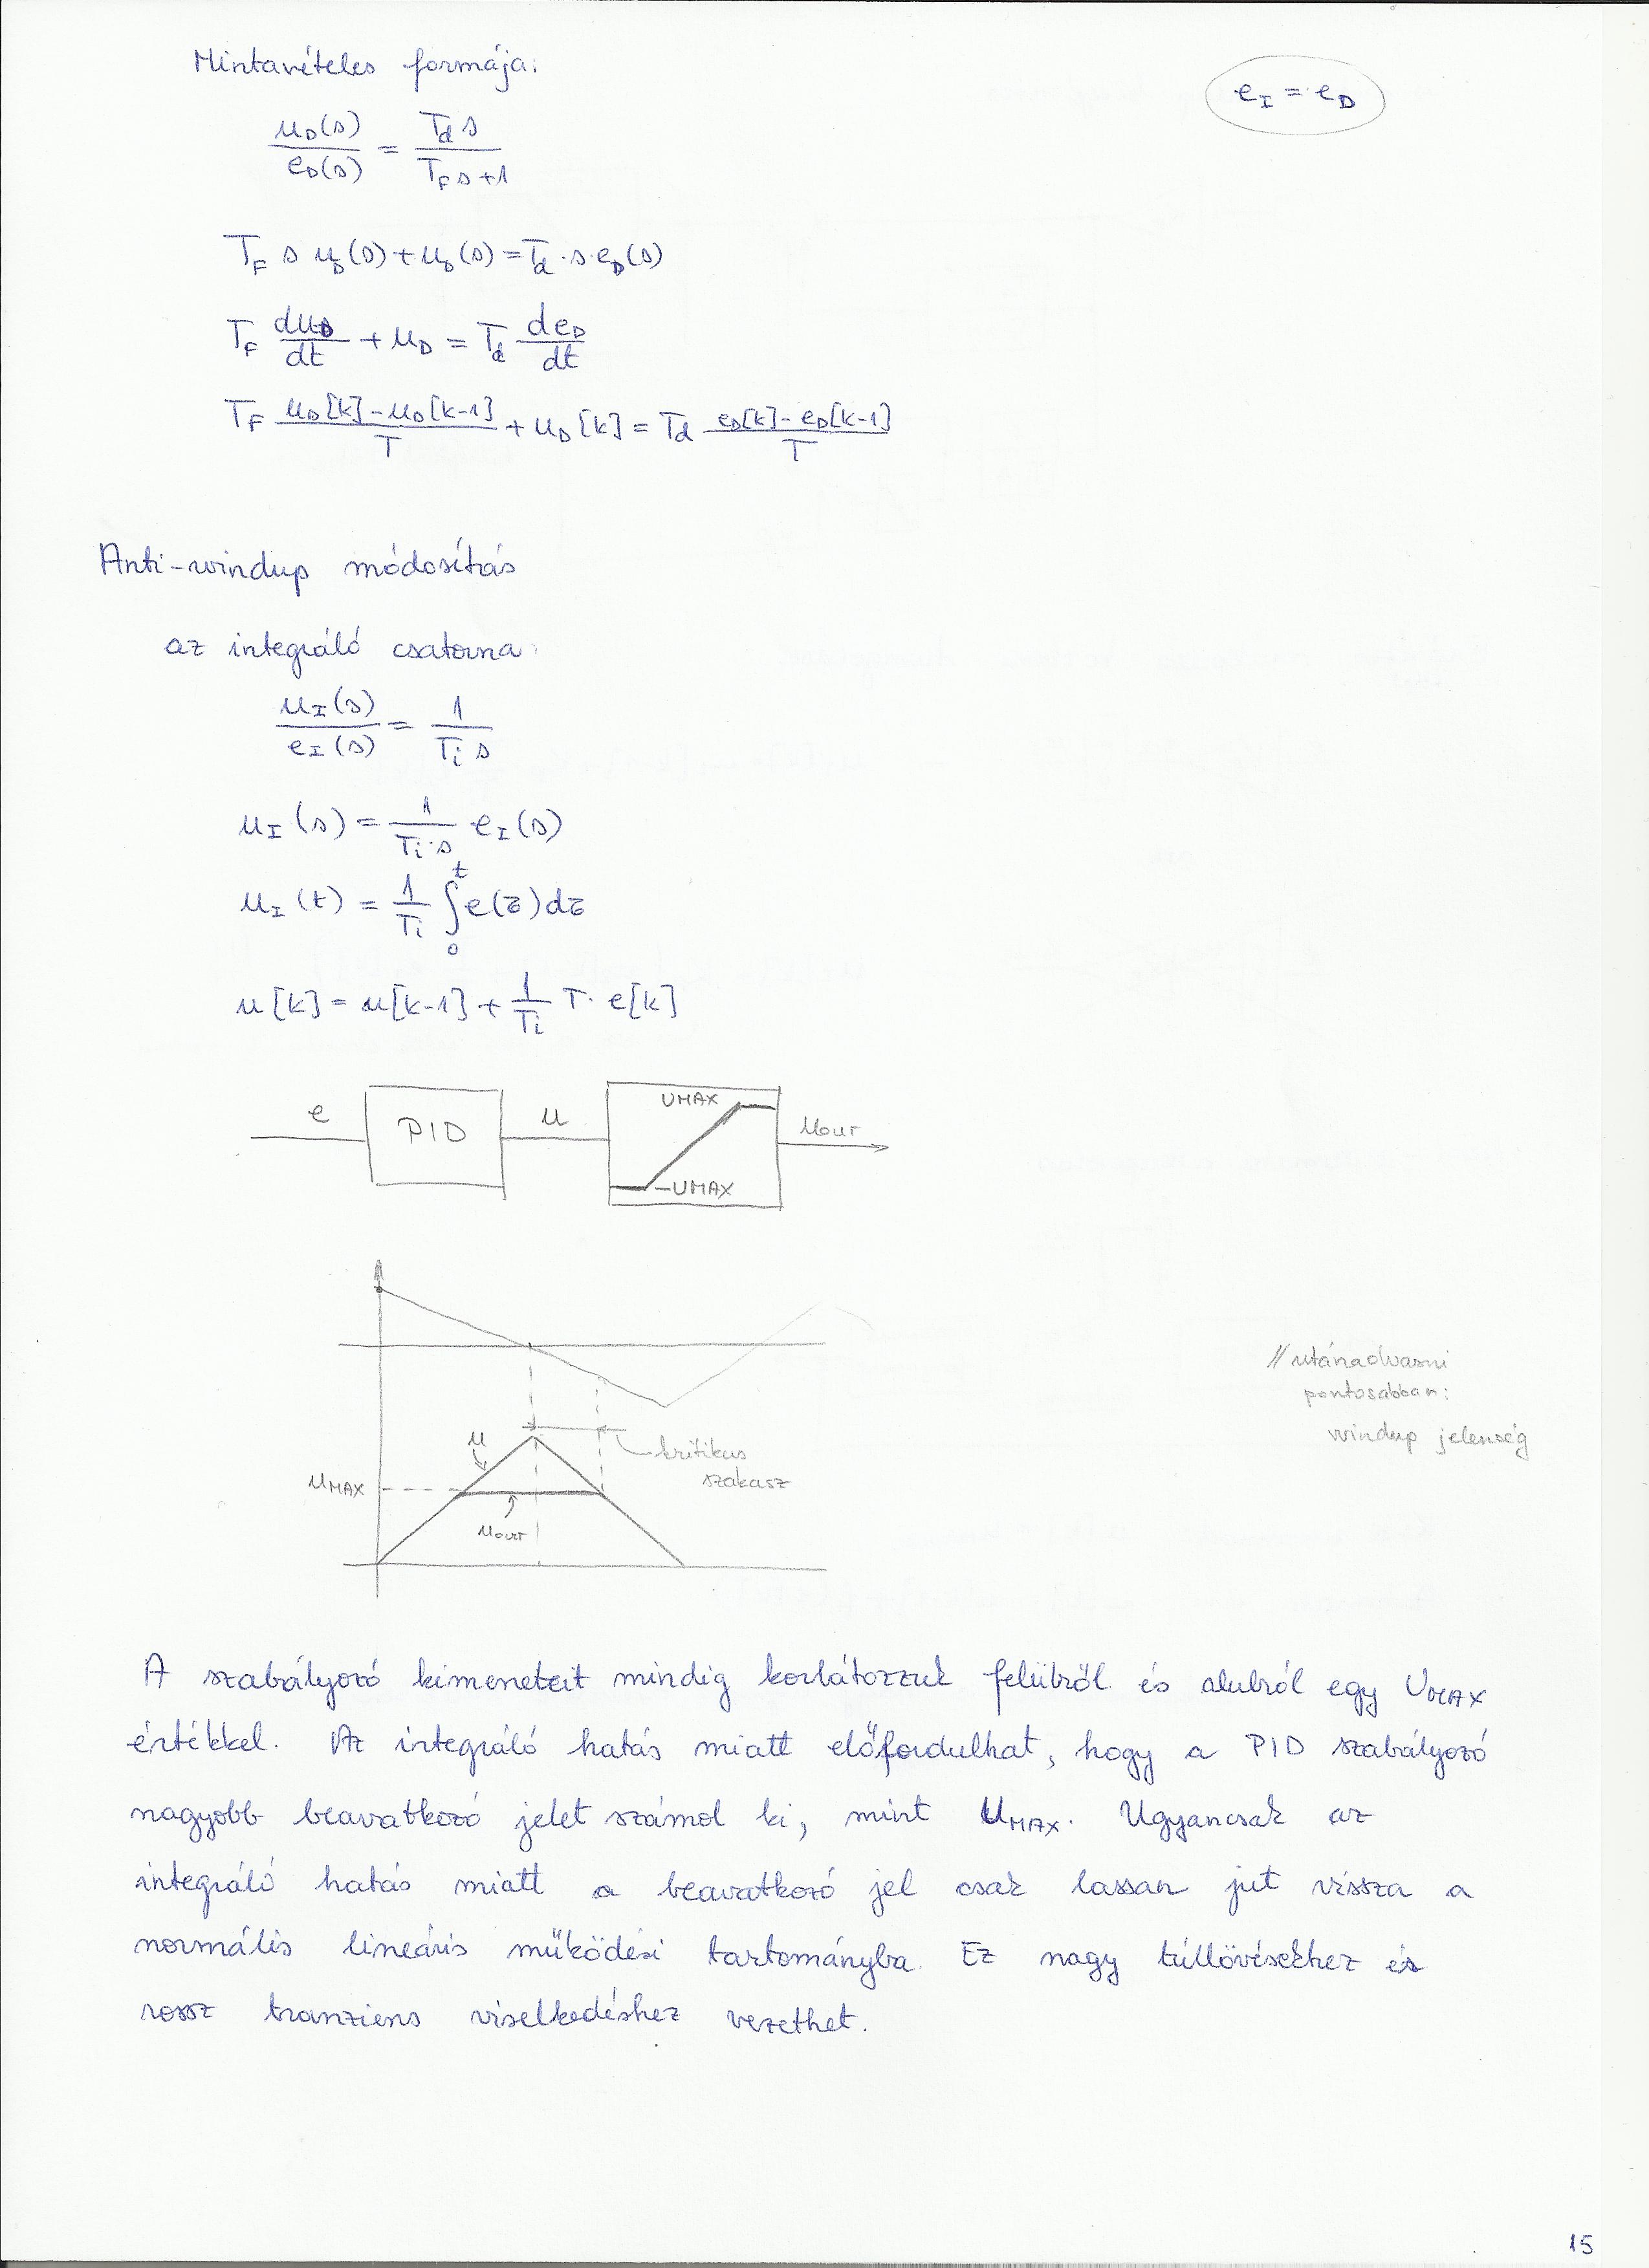 Mintavételes formája:
e_I = e_D
u_D(s) / e_D(s) = T_d s / (T_F s + 1)
T_F s u_D(s) + u_D(s) = T_d · s · e_D(s)
T_F du_D/dt + u_D = T_d de_D/dt
T_F (u_D[k] - u_D[k-1]) / T + u_D[k] = T_d (e_D[k] - e_D[k-1]) / T
Anti-windup módosítás
az integráló csatorna:
u_I(s) / e_I(s) = 1 / (T_i s)
u_I(s) = 1 / (T_i · s) e_I(s)
u_I(t) = 1/T_i ∫_0^t e(τ)dτ
u[k] = u[k-1] + 1/T_i T · e[k]
e PID u UMAX -UMAX u_OUT
// utánaolvasni
pontosabban:
windup jelenség
u
kritikus
szakasz
u_MAX
u_OUT
A szabályozó kimeneteit mindig korlátozzuk felülről és alulról egy U_MAX
értékkel. Az integráló hatás miatt előfordulhat, hogy a PID szabályozó
nagyobb beavatkozó jelet számol ki, mint U_MAX. Ugyancsak az
integráló hatás miatt a beavatkozó jel csak lassan jut vissza a
normális lineáris működési tartományba. Ez nagy túllövésekhez és
rossz tranziens viselkedéshez vezethet.
15